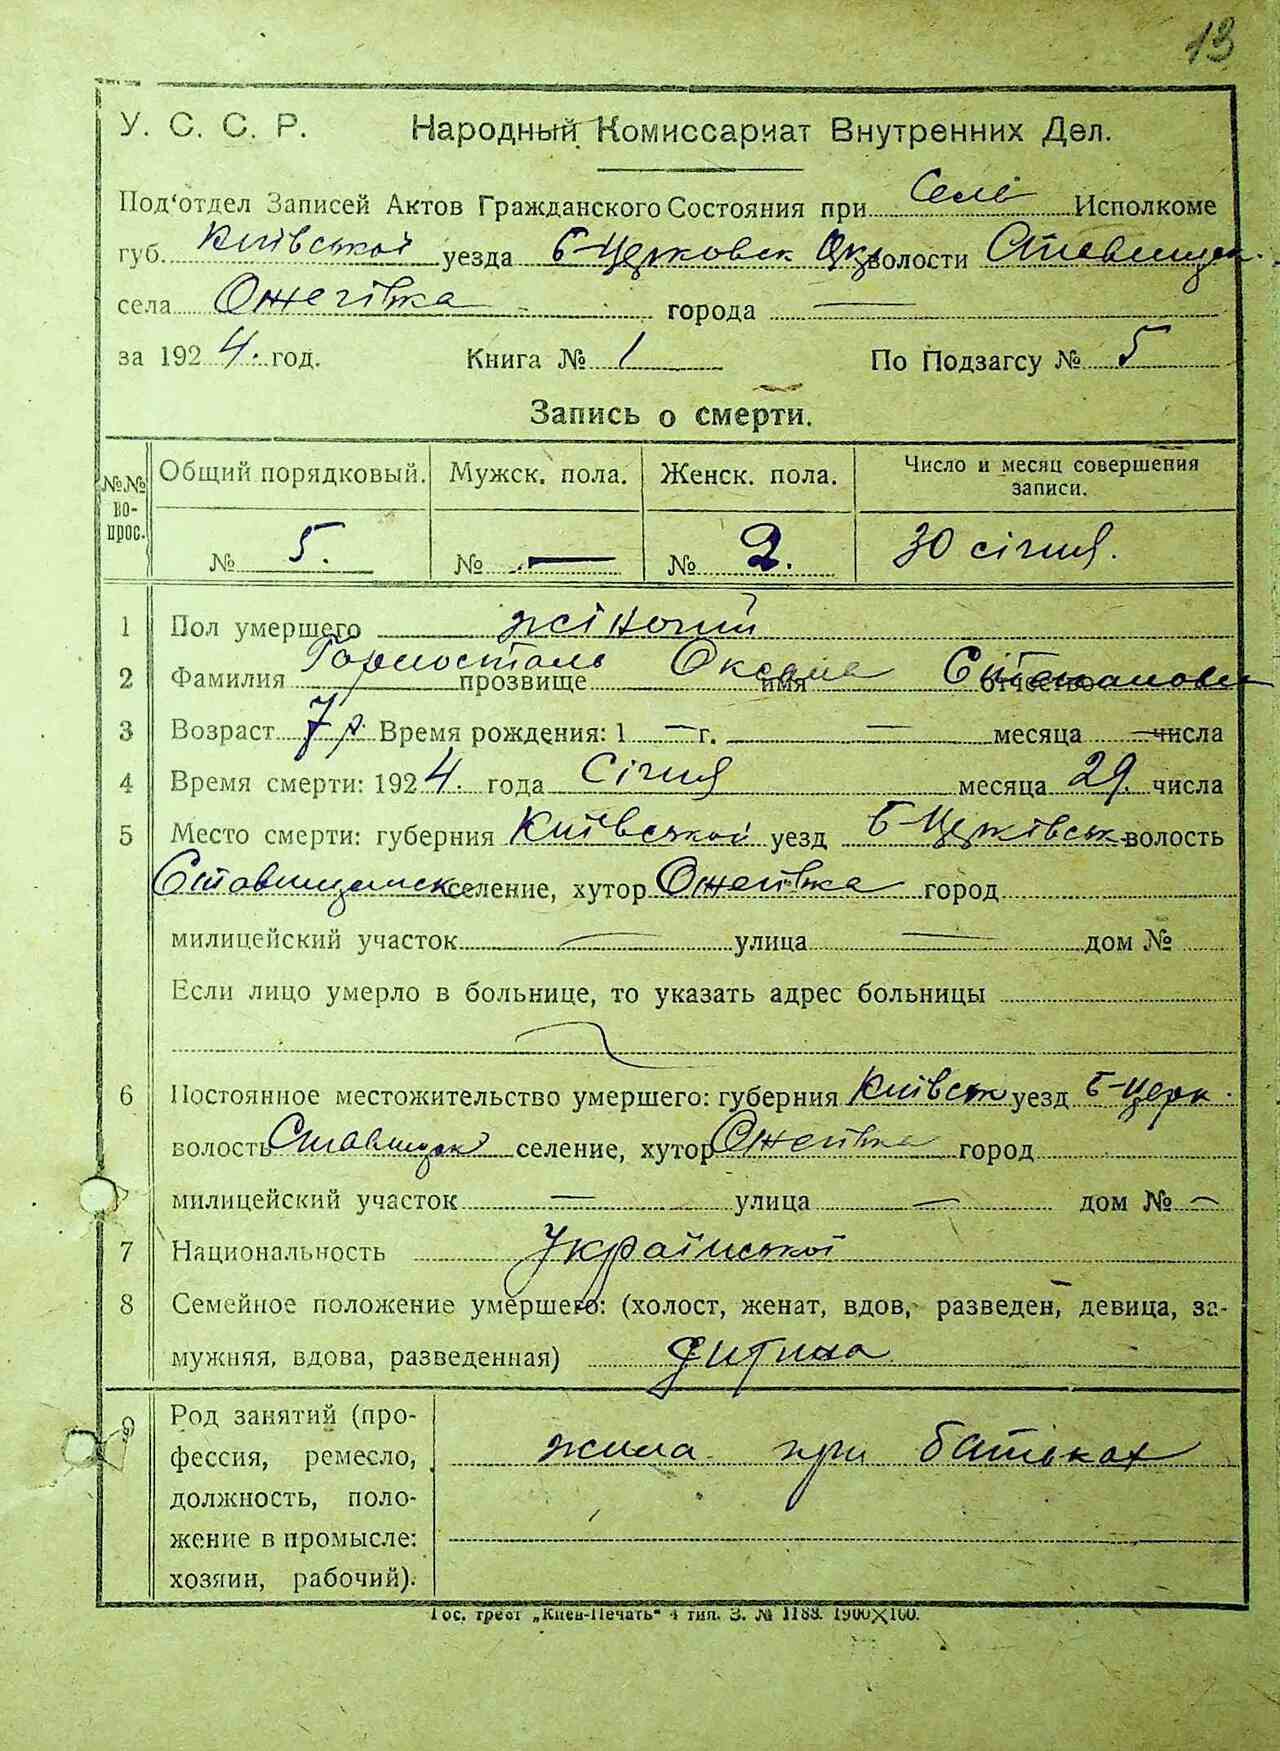 13
У. С. С. Р. Народный Комиссариат Внутренних Дел.
Под'отдел Записей Актов Гражданского Состояния при Селі Исполкоме
губ. Київської уезда Б-Церковск Окр волости Ставищан.
села Ожегівка города —
за 1924. год. Книга № 1 По Подзагсу № 5
Запись о смерти.
№№ вопрос. Общий порядковый. Мужск. пола. Женск. пола. Число и месяц совершения записи.
№ 5. № — № 2. 30 січня.
1 Пол умершего жіночий
2 Фамилия Горносталь прозвище Оксана имя Степановн отчество
3 Возраст 7 р. Время рождения: 1 — г. — месяца — числа
4 Время смерти: 1924. года Січня месяца 29. числа
5 Место смерти: губерния Київської уезд Б-Церківськ волость
Ставищанск селение, хутор Ожегівка город
милицейский участок — улица — дом №
Если лицо умерло в больнице, то указать адрес больницы
6 Постоянное местожительство умершего: губерния Київськ уезд Б-Церк.
волость Ставищан селение, хутор Ожегівка город
милицейский участок — улица — дом № —
7 Национальность Української
8 Семейное положение умершего: (холост, женат, вдов, разведен, девица, за-
мужняя, вдова, разведенная) дитина
9 Род занятий (про-
фессия, ремесло, жила при батьках
должность, поло-
жение в промысле:
хозяин, рабочий).
Гос. трест „Киев-Печать" 4 тип. З. № 1188. 1900×100.